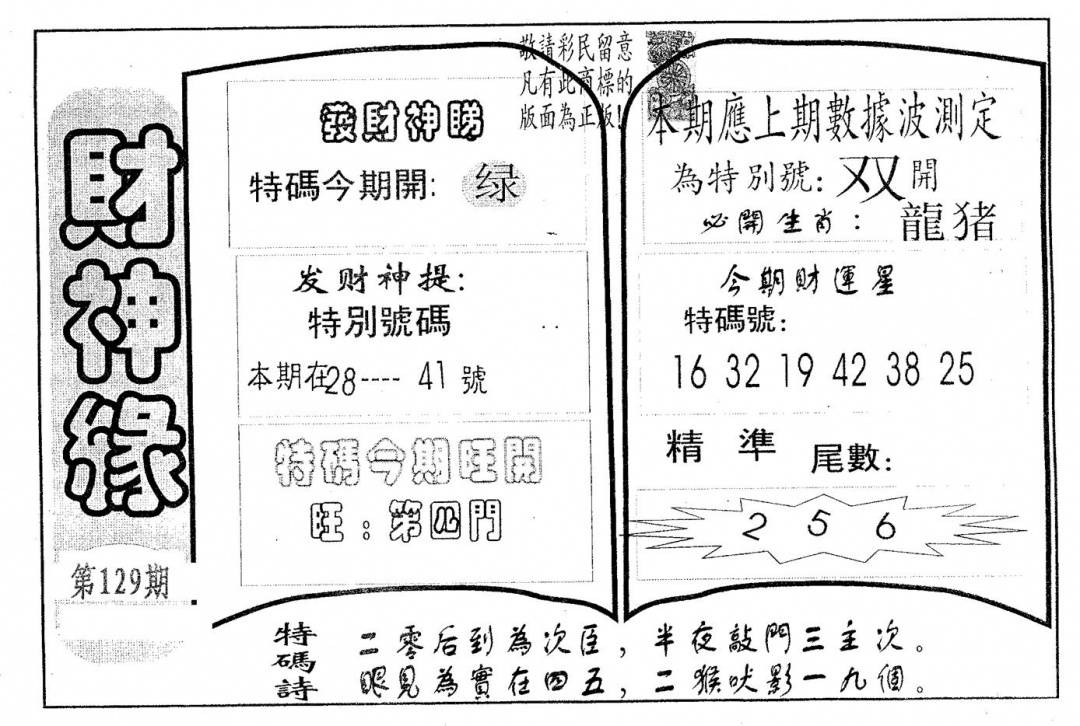 財神緣
第129期
敬請彩民留意
凡有此商標的
版面為正版!
發財神賜
特碼今期開: 绿
发财神提:
特別號碼
本期在28---- 41 號
特碼今期旺開
旺:第四門
本期應上期數據波測定
為特別號: 双 開
必開生肖: 龍猪
今期財運星
特碼號:
16 32 19 42 38 25
精 準 尾數:
2 5 6
特碼詩
二零后到為次臣,半夜敲門三主次。
眼見為實在四五,二猴吠影一九個。